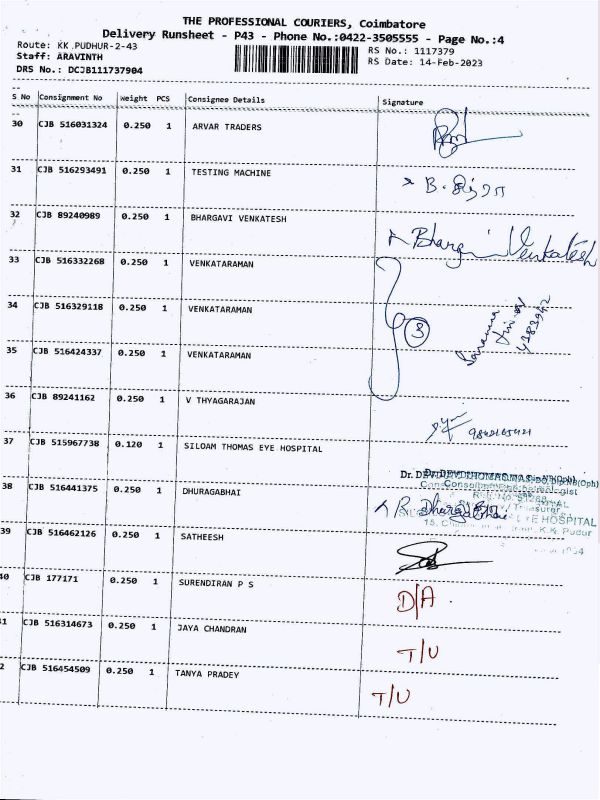 THE PROFESSIONAL COURIERS, Coimbatore
Delivery Runsheet - P43 - Phone No.:0422-3505555 - Page No.:4
Route: KK.PUDHUR-2-43
RS No.: 1117379
Staff: ARAVINTH
RS Date: 14-Feb-2023
DRS No.: DCJB111737904
S No Consignment No Weight PCS Consignee Details Signature
30 CJB 516031324 0.250 1 ARVAR TRADERS
31 CJB 516293491 0.250 1 TESTING MACHINE
32 CJB 89240989 0.250 1 BHARGAVI VENKATESH Bhargavi Venkatesh
33 CJB 516332268 0.250 1 VENKATARAMAN
34 CJB 516329118 0.250 1 VENKATARAMAN 3
35 CJB 516424337 0.250 1 VENKATARAMAN
36 CJB 89241162 0.250 1 V THYAGARAJAN
37 CJB 515967738 0.120 1 SILOAM THOMAS EYE HOSPITAL
38 CJB 516441375 0.250 1 DHURAGABHAI R Dhuragabhai
EYE HOSPITAL
K.K. Pudur
39 CJB 516462126 0.250 1 SATHEESH
40 CJB 177171 0.250 1 SURENDIRAN P S D/A
41 CJB 516314673 0.250 1 JAYA CHANDRAN T/U
2 CJB 516454509 0.250 1 TANYA PRADEY T/U